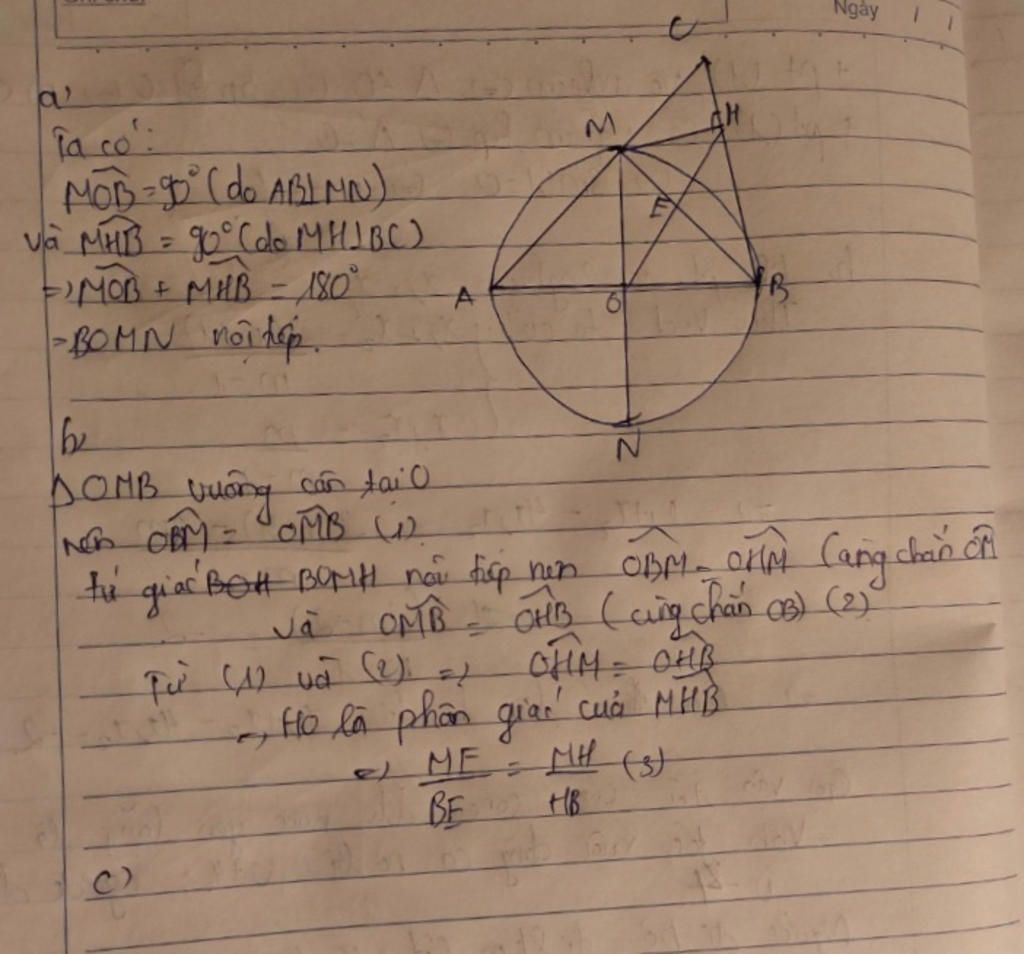 Ngày / /
a,
Ta có:
MOB = 90° (do AB⊥MN)
và MHB = 90° (do MH⊥BC)
=> MOB + MHB = 180°
=> BOMN nội tiếp.
C
M
H
E
A
O
B
N
b,
Δ OMB vuông cân tại O
nên OBM = OMB (1)
tứ giác BOH BOMH nội tiếp nên OBM = OHM (cùng chắn OM
và OMB = OHB (cùng chắn OB) (2)
Từ (1) và (2) => OHM = OHB
=> HO là phân giác của MHB
=> ME/BE = MH/HB (3)
c)